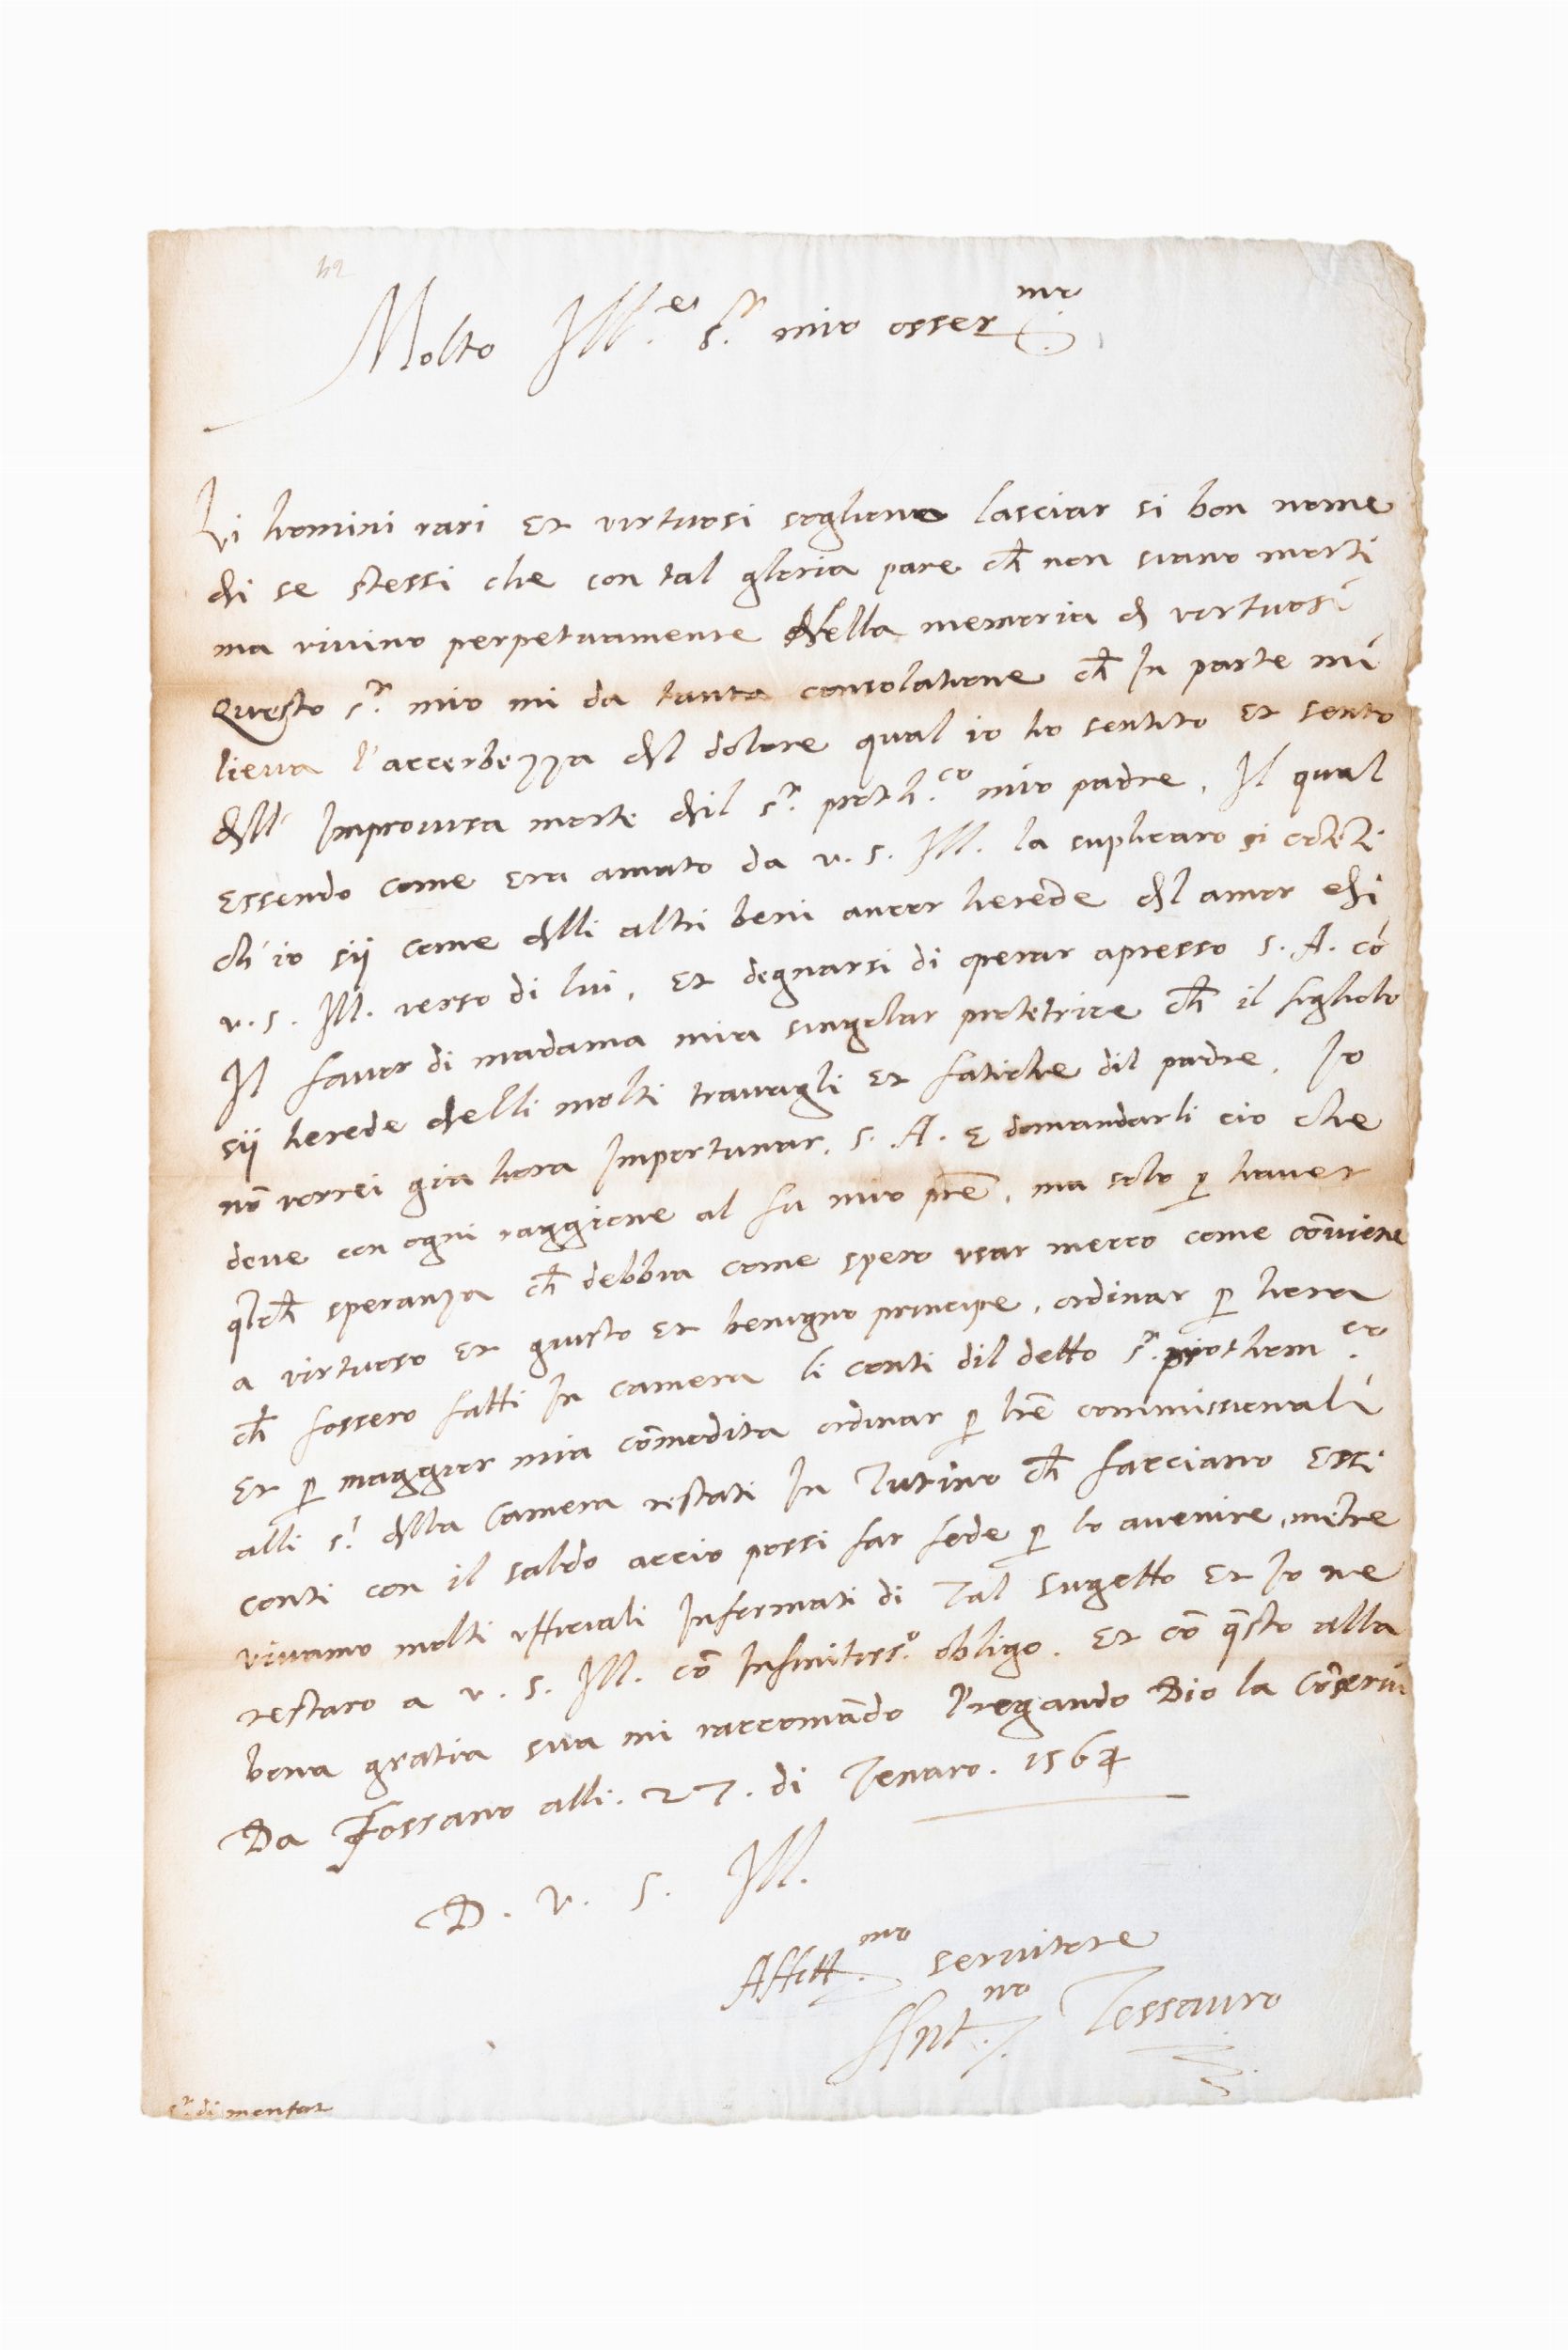 Molto Ill.e s.r mio osser.mo
Li homini rari et virtuosi sogliono lasciar si bon nome
di se stessi che con tal gloria pare ch̄ non siano morti
ma vivino perpetuamente nella memoria d virtuosi
Questo s.r mio mi da tanta consolatione ch̄ In parte mi
lieva l'accerbezza dl dolore qual io ho sentito et sento
dll' Improvisa morte dil s.r proth.co mio padre. Il qual
essendo come era amato da v. s. Ill. la suplicaro si cōtēti
ch' io sij come dlli altri beni ancor herede dl amor di
v. s. Ill. verso di lui, et degnarsi di operar apresso s. A. cō
Il favor di madama mia singolar protetrice ch̄ il figliolo
sij herede delli molti travagli et fatiche dil padre. Io
nō vorrei gia hora Importunar. s. A. e domandarli cio che
deve con ogni raggione al fu mio prē, ma solo p haver
qlch̄ speranza ch̄ debbia come spero usar mecco come cōviene
a virtuoso et giusto et benigno principe, ordinar p hora
ch̄ fossero fatti In camera li conti dil detto s.r prothom.co
et p maggior mia cōmodita ordinar p lrē commissionali
alli s.ri dlla Camera restati In Turino ch̄ facciano essi
conti con il saldo accio possi far fede p lo avenire, mētre
vivano molti ufficiali Informati di Tal sugetto et Io ne
restaro a v. s. Ill. cō Infinitiss.o obligo. Et cō q̄sto alla
bona gratia sua mi raccomādo Pregando Dio la Cōservi
Da Fossano alli. 27. di Jenaro. 1564
D. v. s. Ill.
Affett.mo servitore
Ant.no Tessauro
s.r di monfor